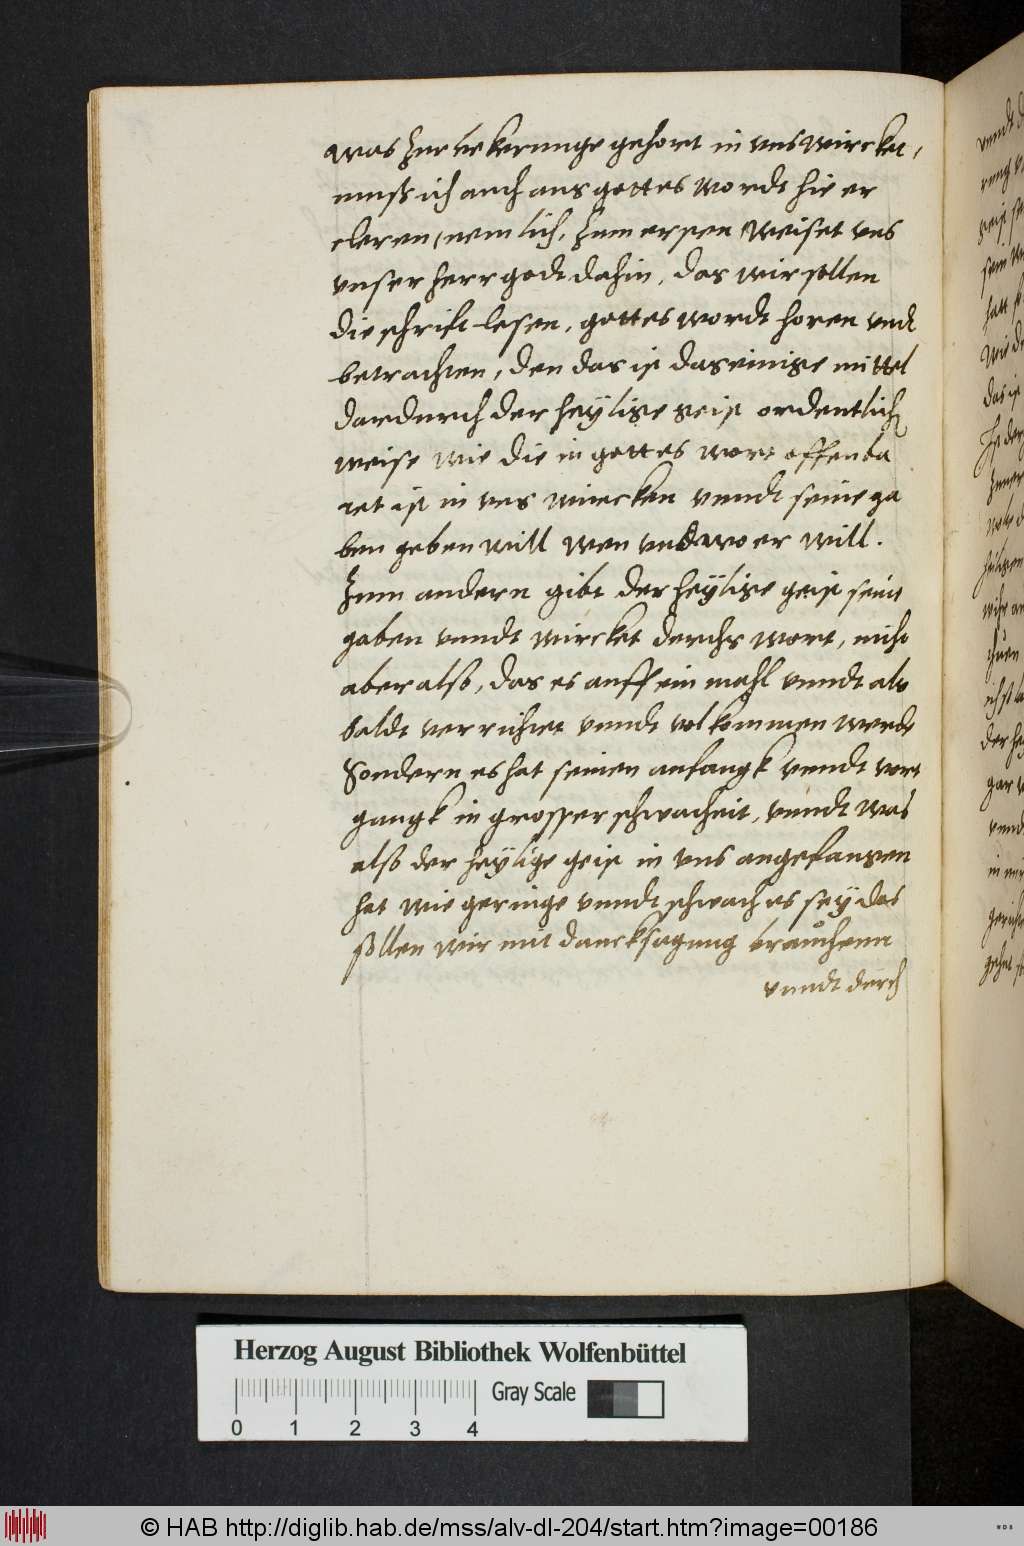 was zur bekerunge gehort in uns wircket,
muß ich auch aus gottes wordt hie er
cleren, nemlich, Zum ersten weiset uns
unser herr godt dahin, das wir sollen
die schrift lesen, gottes wordt horen undt
betrachten, den das ist das einige mittel
dardurch der heÿlige geist ordentlich
weise wie die in gottes wort offenba
ret ist in uns wircken unndt seine ga
ben geben will wen und wo er will.
Zum andern gibt der heÿlige geist seine
gaben unndt wircket derchs wort, nicht
aber alß, das es auff ein mahl unndt als
baldt verrichtet unndt volkommen werde
Sondern es hat seinen anfangk unndt vort
gangk in grosser schwacheit, unndt was
alß der heÿlige geist in uns angefangen
hat wie geringe unndt schwach es seÿ das
sollen wir mit dancksagung brauchenn
unndt derch
Herzog August Bibliothek Wolfenbüttel
Gray Scale
0 1 2 3 4
© HAB http://diglib.hab.de/mss/alv-dl-204/start.htm?image=00186